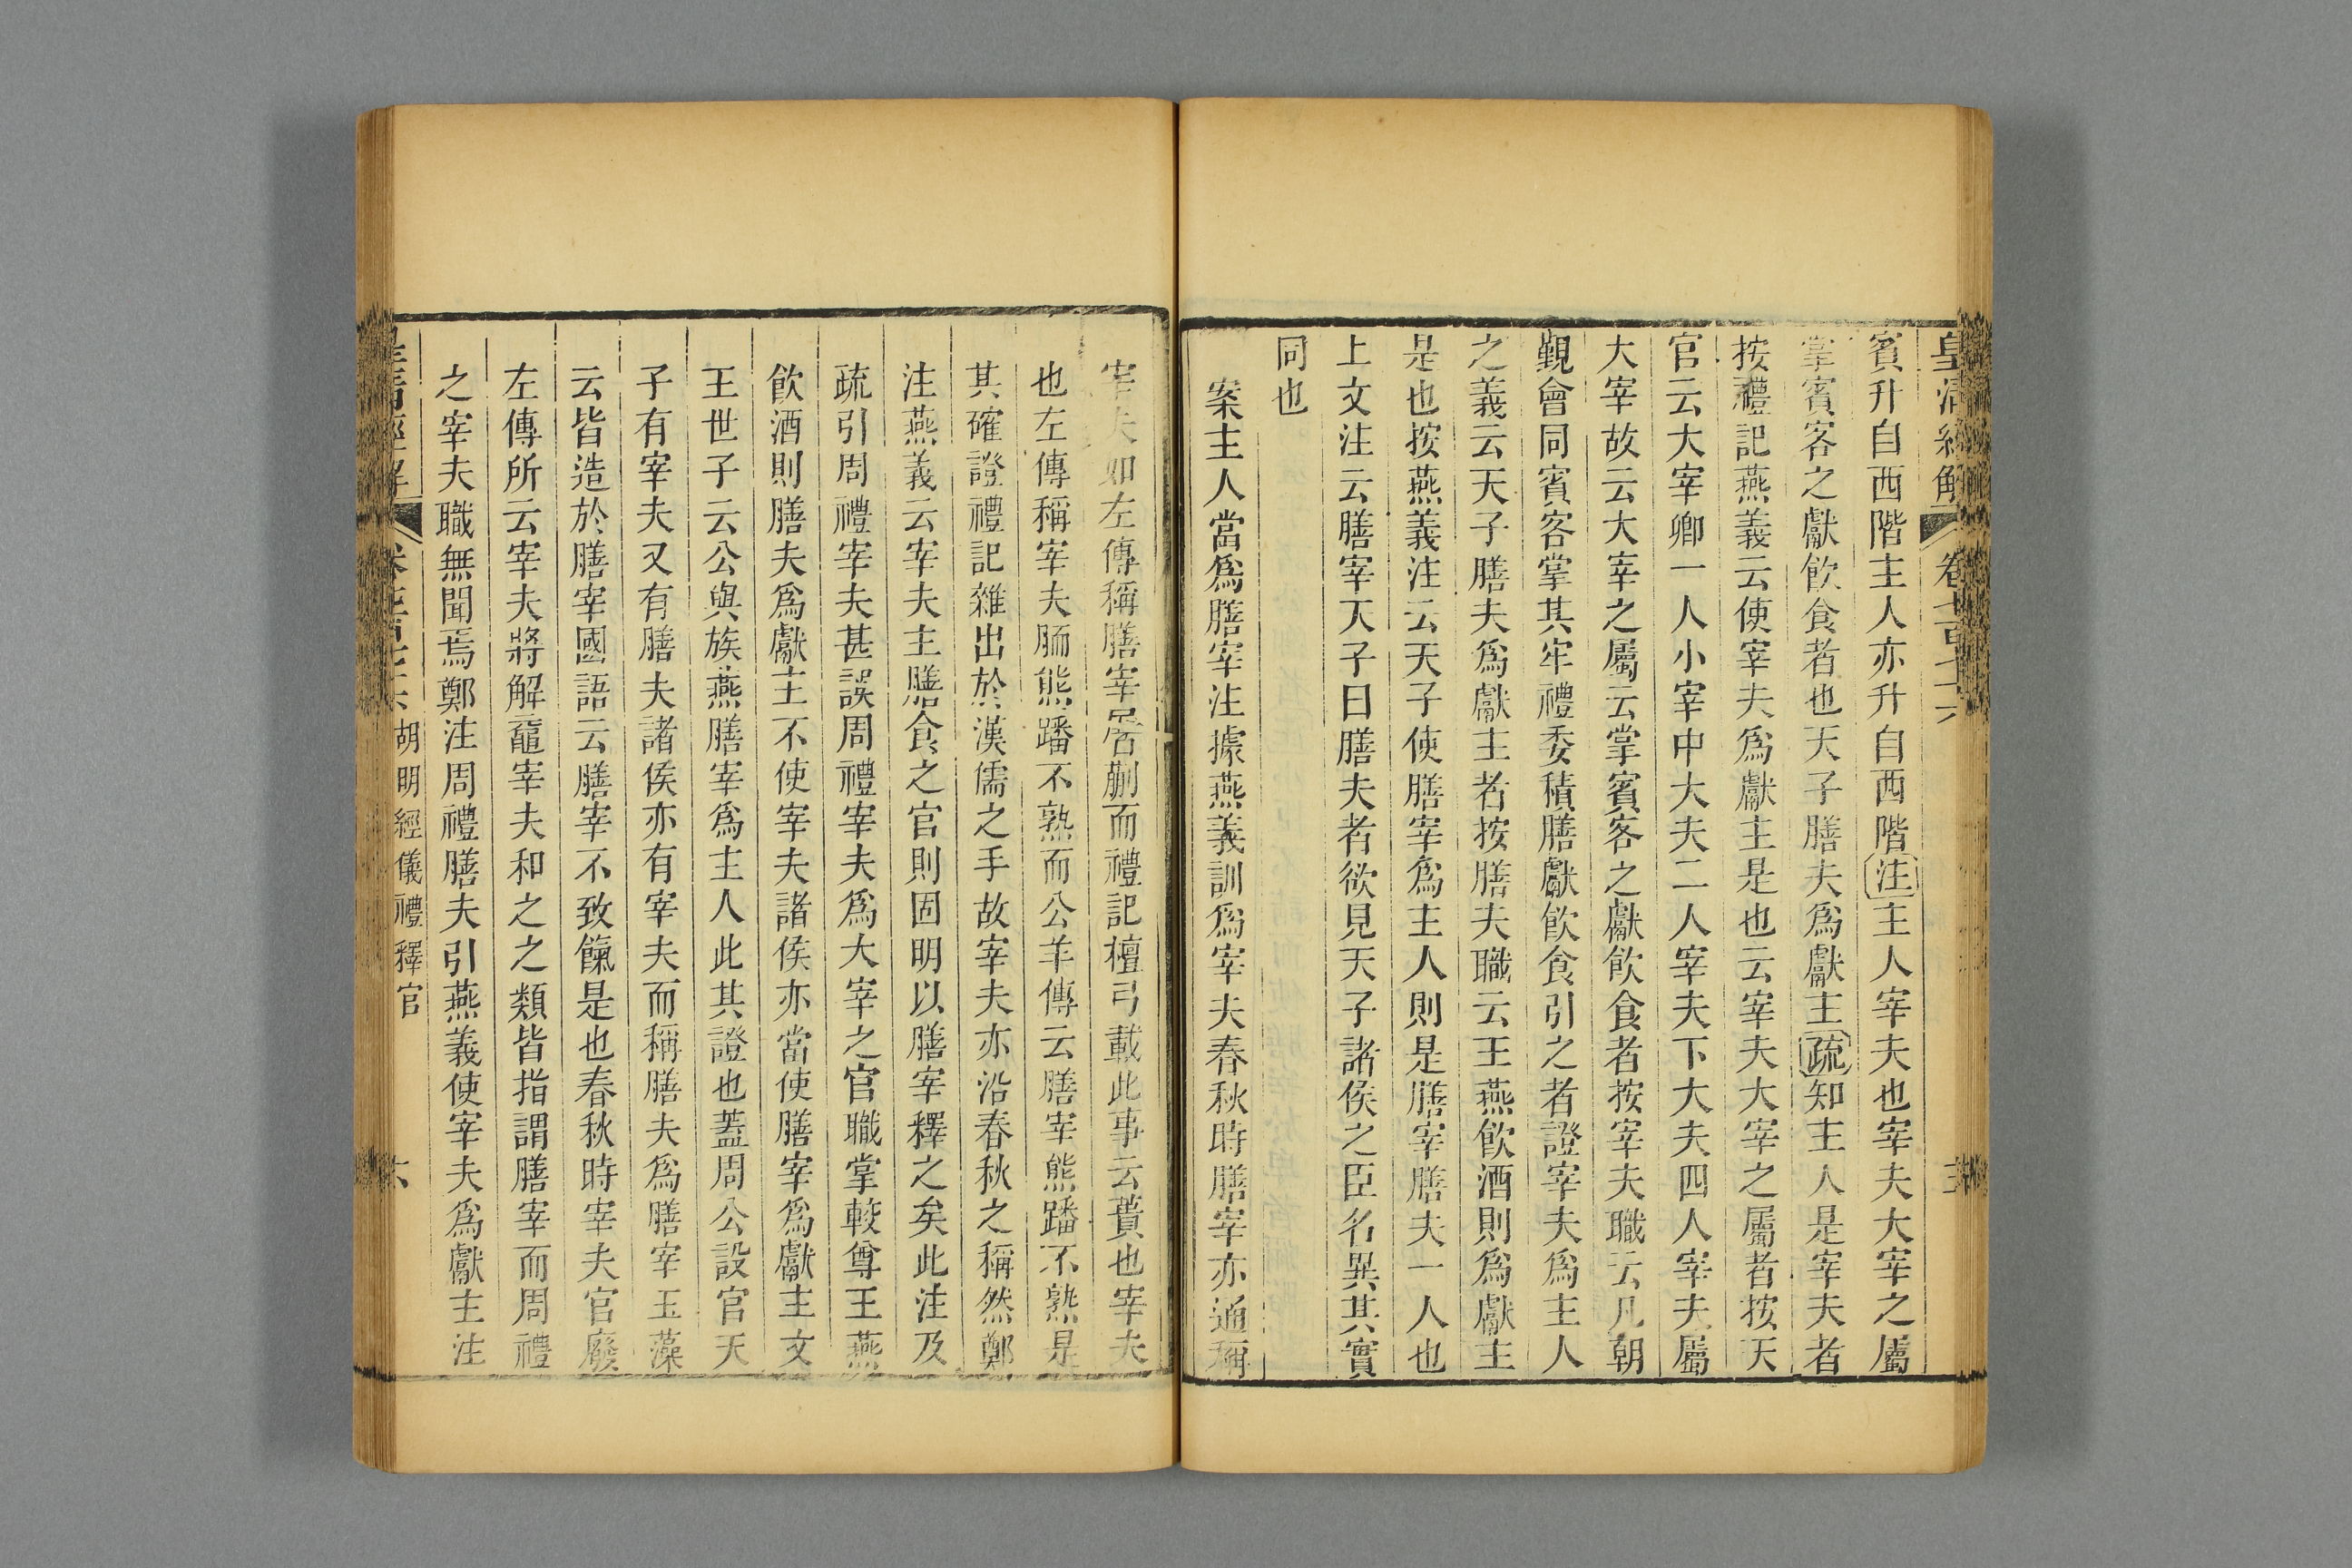 賓升自西階主人亦升自西階注主人宰夫也宰夫大宰之屬
掌賓客之獻飲食者也天子膳夫爲獻主疏知主人是宰夫者
按禮記燕義云使宰夫爲獻主是也云宰夫大宰之屬者按天
官云大宰卿一人小宰中大夫二人宰夫下大夫四人宰夫屬
大宰故云大宰之屬云掌賓客之獻飲食者按宰夫職云凡朝
覲會同賓客掌其牢禮委積膳獻飲食引之者證宰夫爲主人
之義云天子膳夫爲獻主者按膳夫職云王燕飲酒則爲獻主
是也按燕義注云天子使膳宰爲主人則是膳宰膳夫一人也
上文注云膳宰天子曰膳夫者欲見天子諸侯之臣名異其實
同也
案主人當爲膳宰注據燕義訓爲宰夫春秋時膳宰亦通稱
宰夫如左傳稱膳宰屠蒯而禮記檀弓載此事云蕢也宰夫
也左傳稱宰夫胹熊蹯不熟而公羊傳云膳宰熊蹯不熟是
其確證禮記雜出於漢儒之手故宰夫亦沿春秋之稱然鄭
注燕義云宰夫主膳食之官則固明以膳宰釋之矣此注及
疏引周禮宰夫甚誤周禮宰夫爲大宰之官職掌較尊王燕
飲酒則膳夫爲獻主不使宰夫諸侯亦當使膳宰爲獻主文
王世子云公與族燕膳宰爲主人此其證也蓋周公設官天
子有宰夫又有膳夫諸侯亦有宰夫而稱膳夫爲膳宰玉藻
云皆造於膳宰國語云膳宰不致餼是也春秋時宰夫官廢
左傳所云宰夫將解黿宰夫和之之類皆指謂膳宰而周禮
之宰夫職無聞焉鄭注周禮膳夫引燕義使宰夫爲獻主注
胡明經儀禮釋官